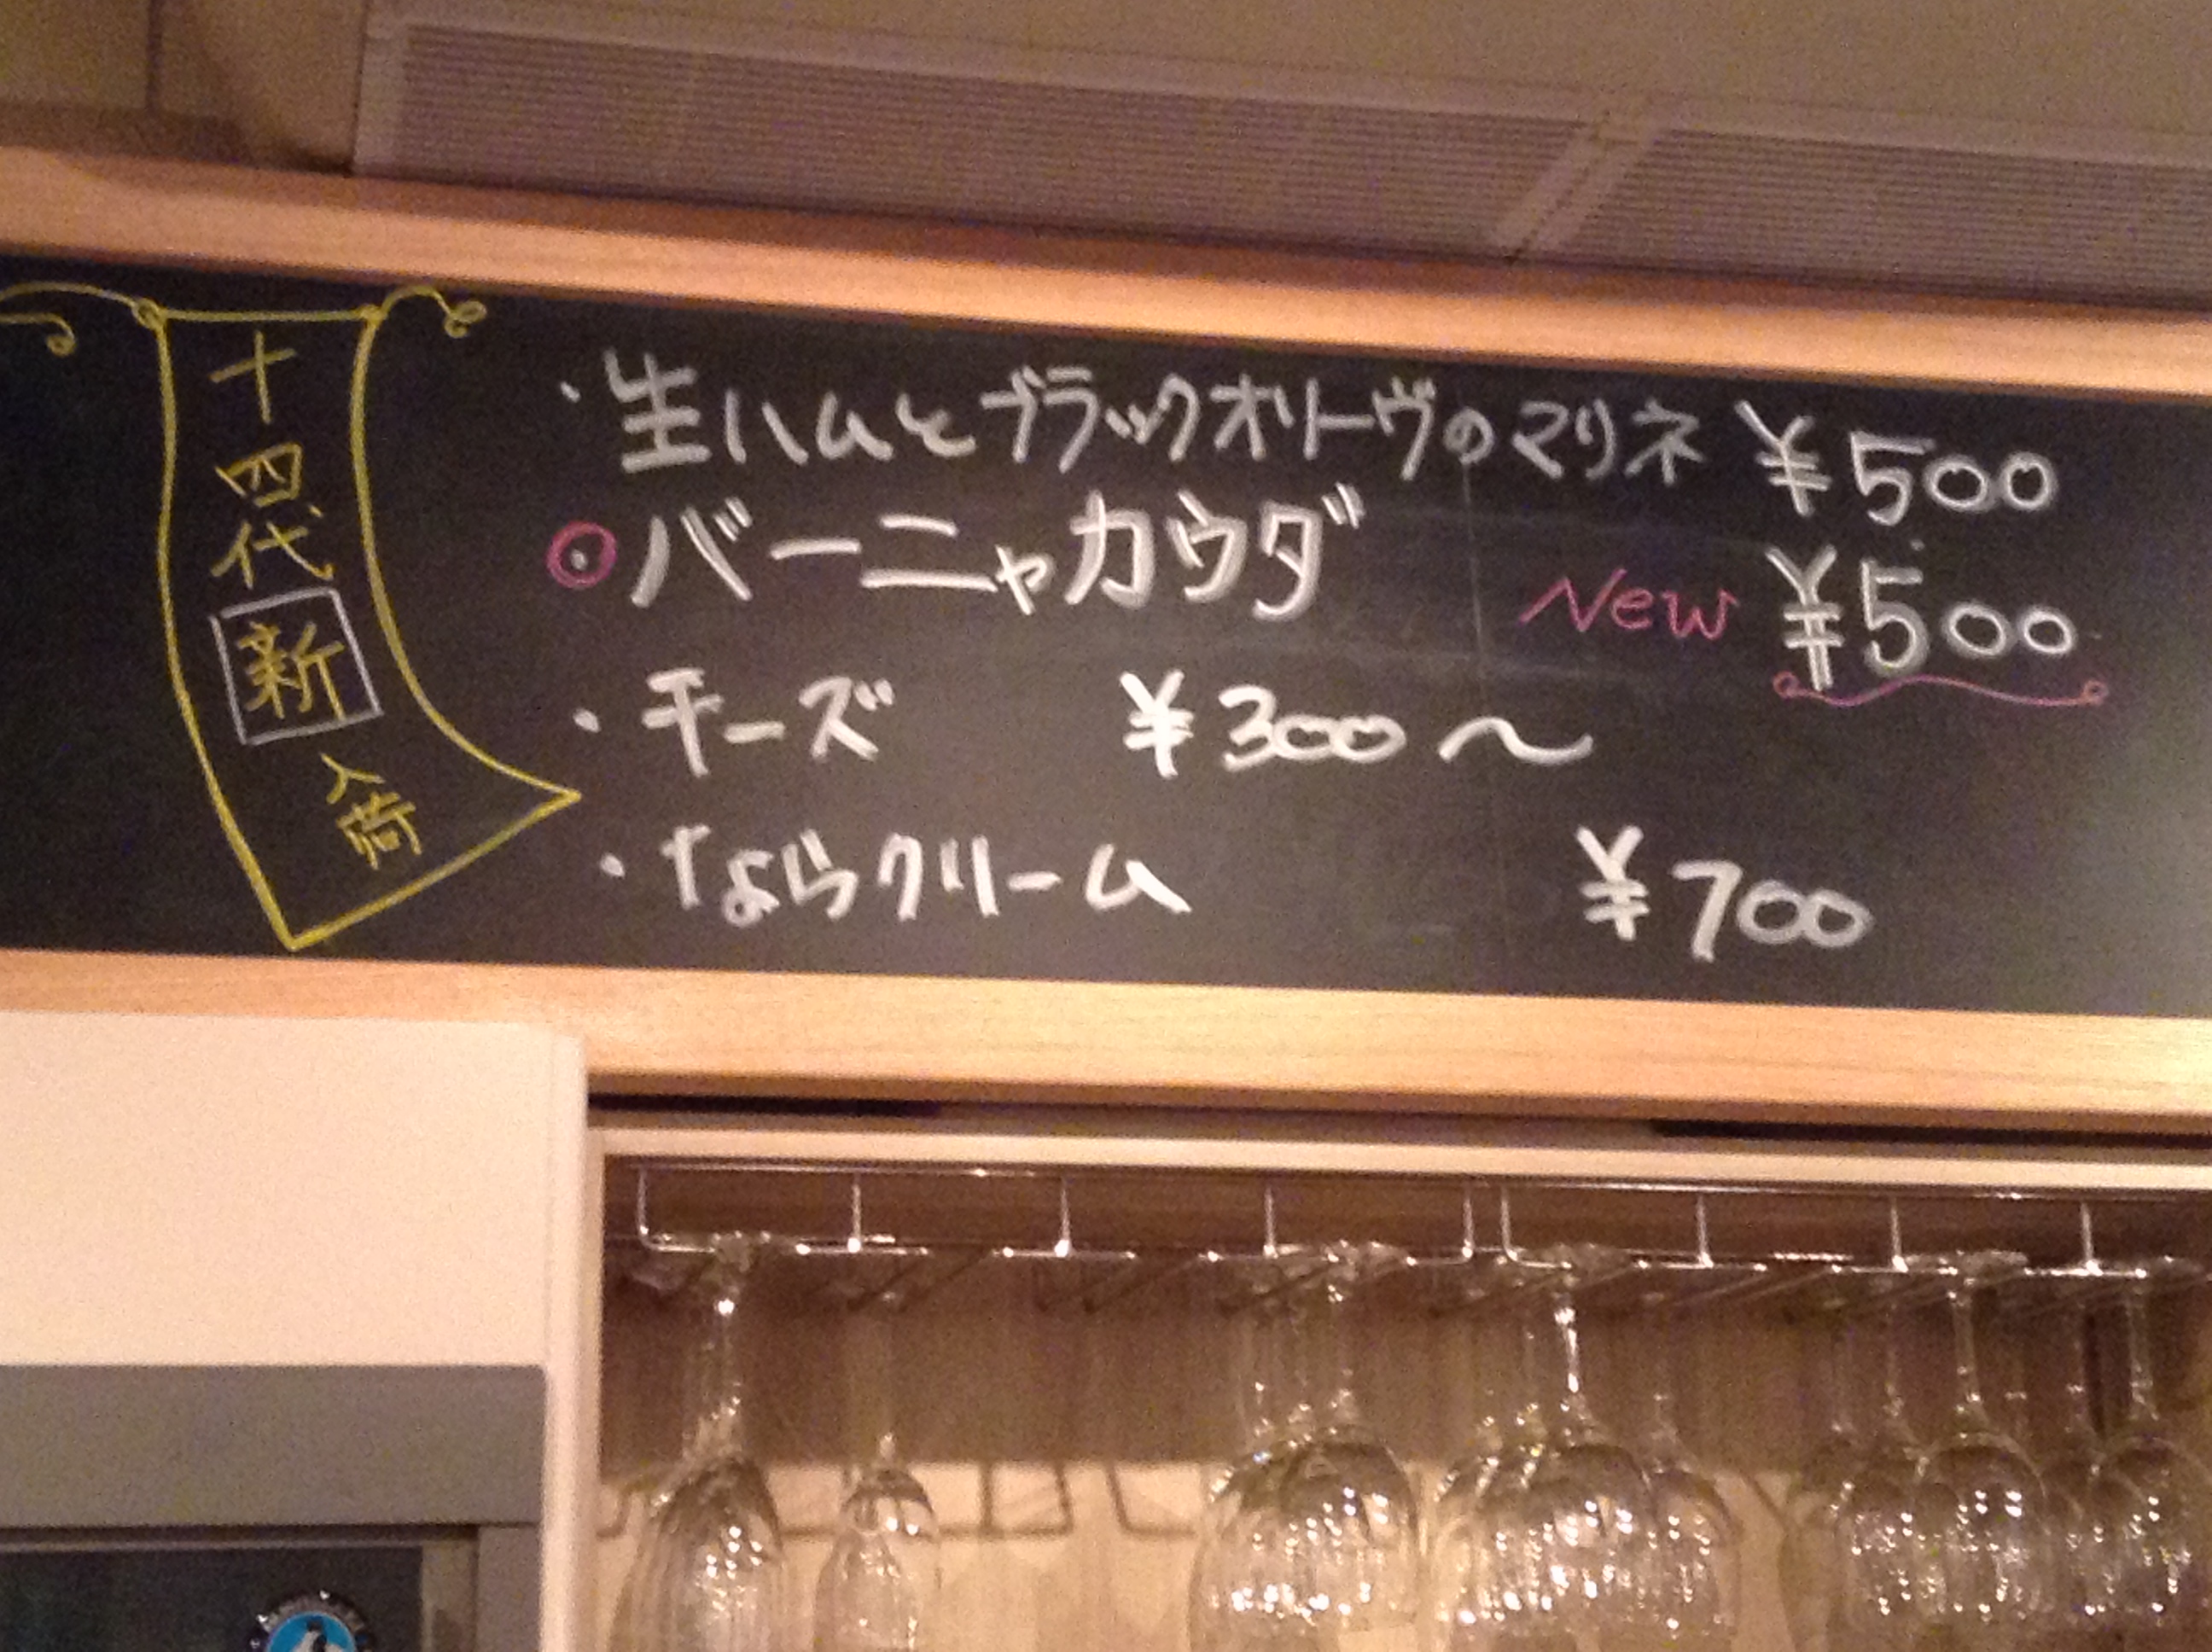 十四代
新
入荷
・生ハムとブラックオリーヴのマリネ ¥500
・バーニャカウダ New ¥500
・チーズ ¥300〜
・ならクリーム ¥700